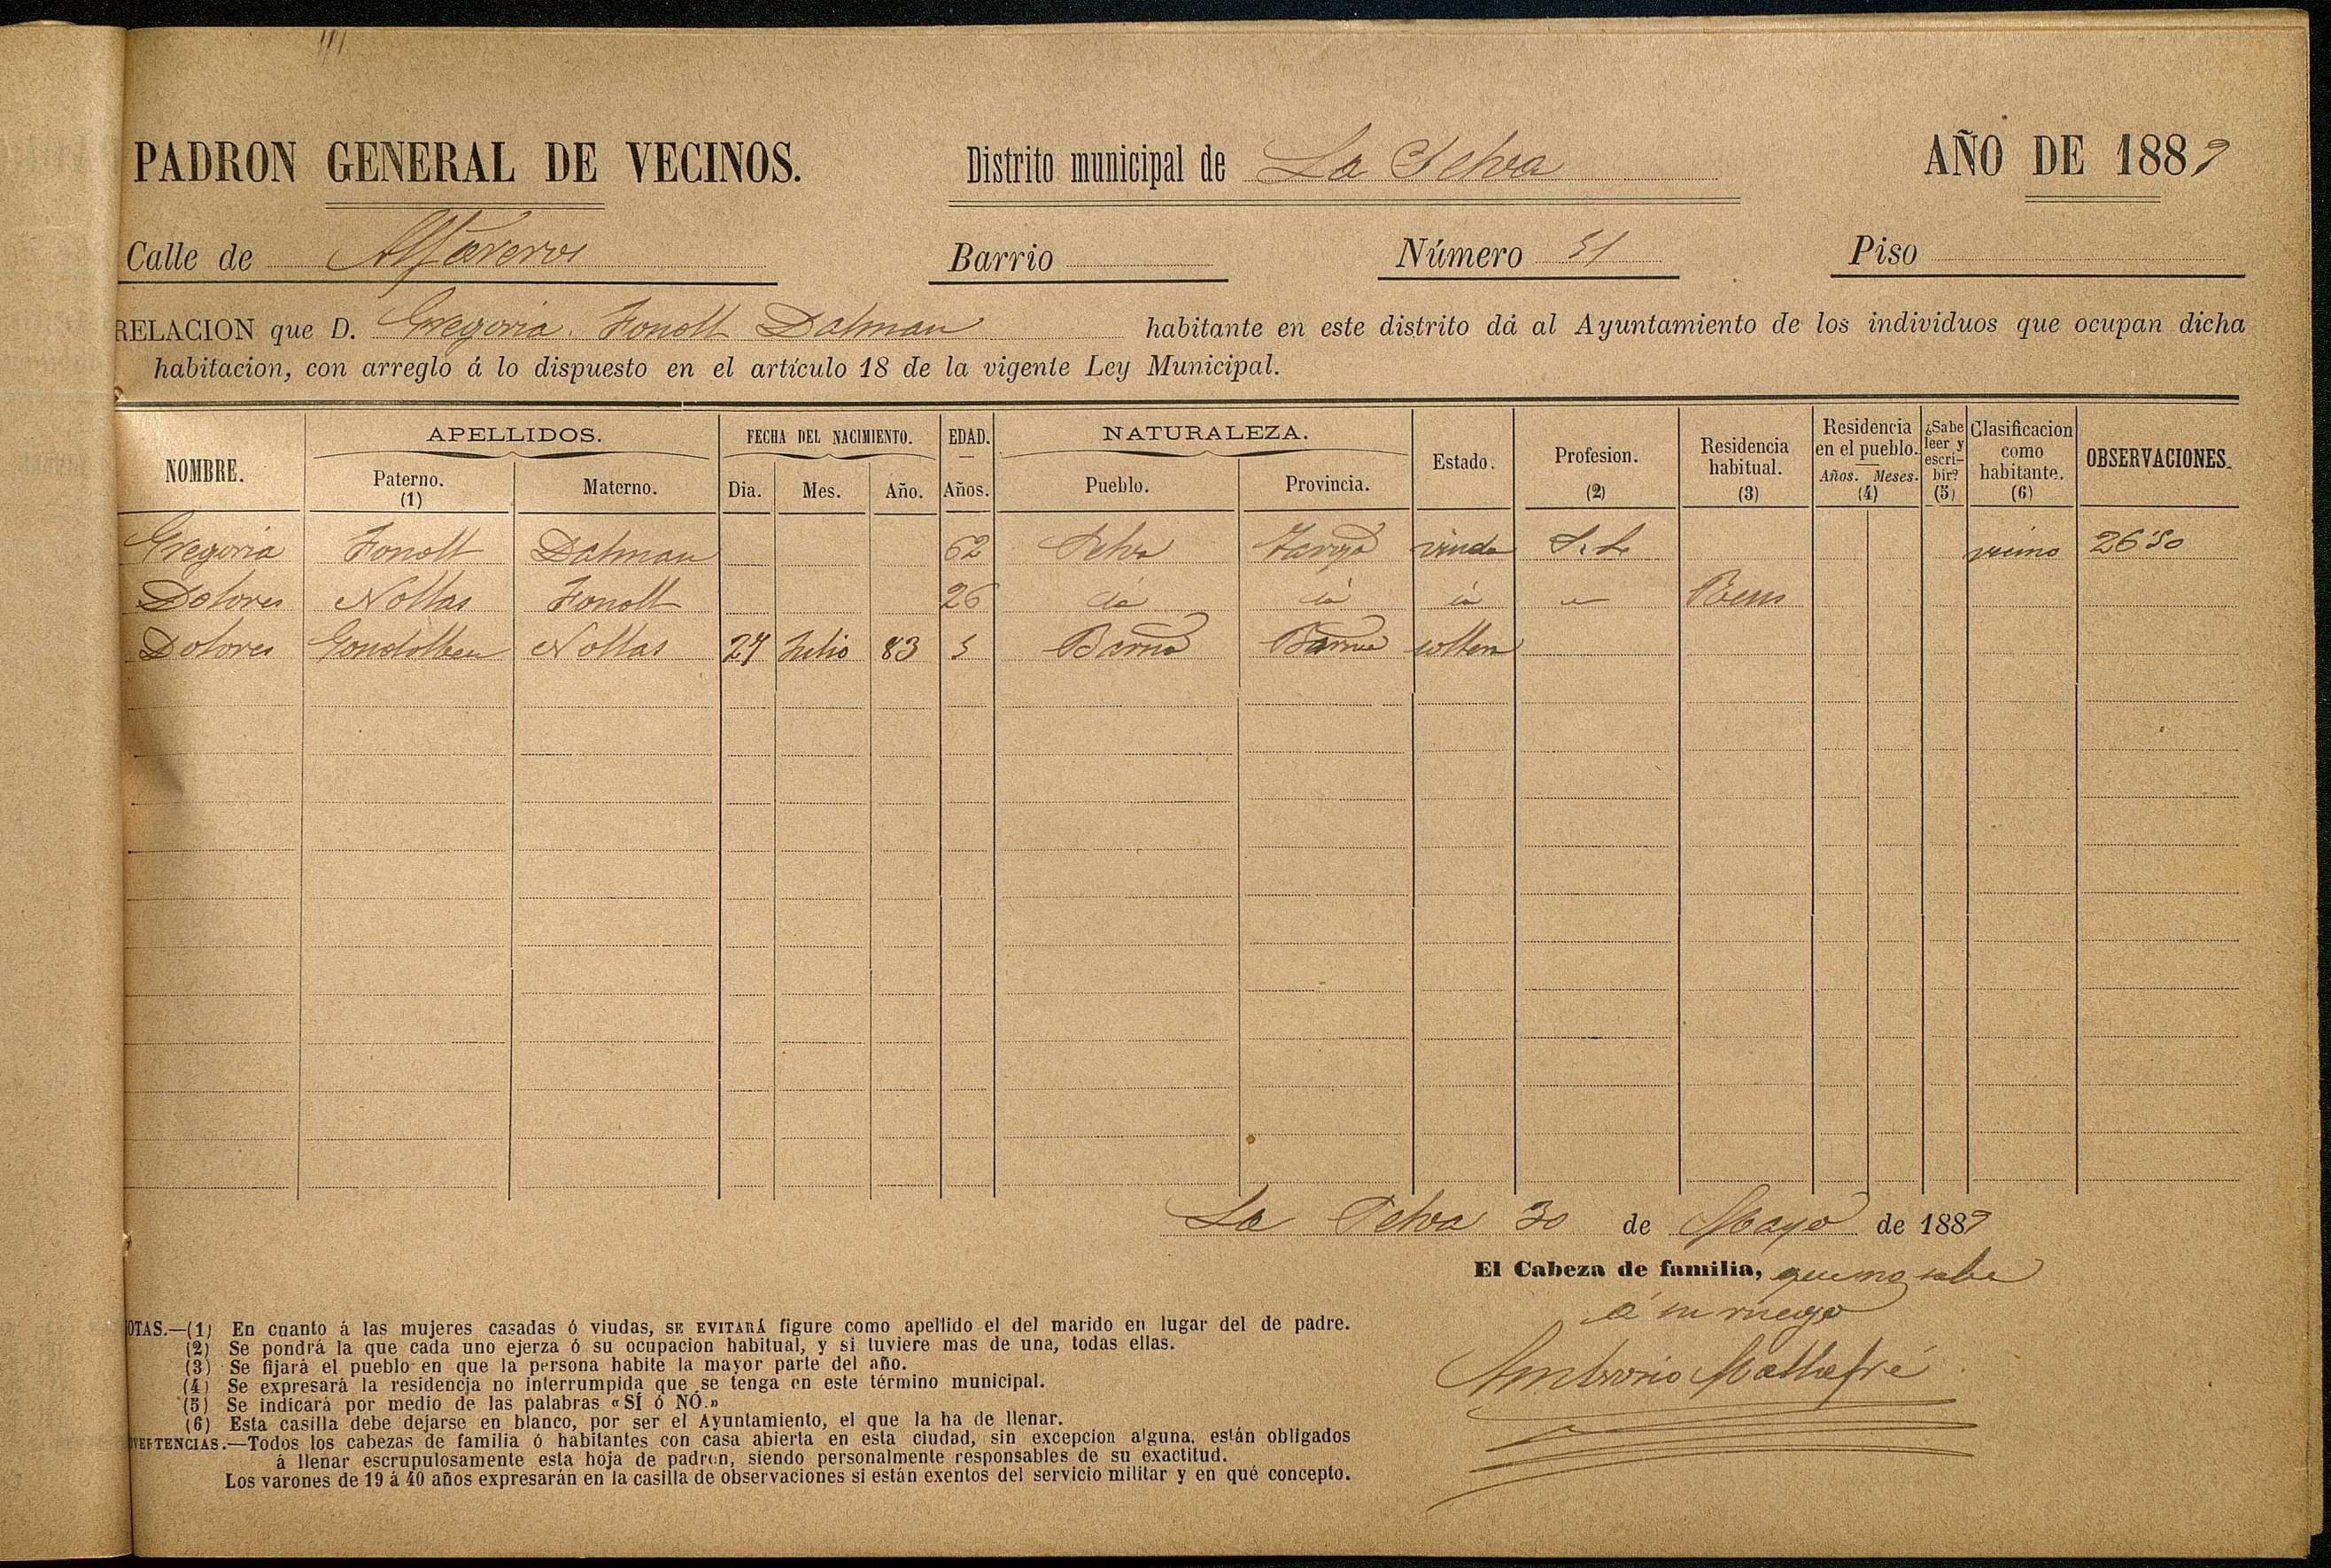 PADRON GENERAL DE VECINOS. Distrito municipal de La Selva AÑO DE 1889
Calle de Alfareros Barrio Número 51 Piso
RELACION que D. Gregoria Fonoll Dalmau habitante en este distrito dá al Ayuntamiento de los individuos que ocupan dicha
habitacion, con arreglo á lo dispuesto en el artículo 18 de la vigente Ley Municipal.
NOMBRE. APELLIDOS. Paterno. (1) Materno. FECHA DEL NACIMIENTO. Dia. Mes. Año. EDAD. Años. NATURALEZA. Pueblo. Provincia. Estado. Profesion. (2) Residencia habitual. (3) Residencia en el pueblo. Años. Meses. (4) ¿Sabe leer y escribir? (5) Clasificacion como habitante. (6) OBSERVACIONES.
Gregoria Fonoll Dalmau 62 Selva Tarrgª viuda S. L. vecino 26'50
Dolores Nollas Fonoll 26 id id id Reus
Dolores Nollas 27 Julio 83 5 Barnª Barnª soltera
La Selva 30 de Mayo de 1889
El Cabeza de familia, que no sabe
á su ruego
Ambrosio Mallafré
OTAS.—(1) En cuanto á las mujeres casadas ó viudas, SE EVITARÁ figure como apellido el del marido en lugar del de padre.
(2) Se pondrá la que cada uno ejerza ó su ocupacion habitual, y si tuviere mas de una, todas ellas.
(3) Se fijará el pueblo en que la persona habite la mayor parte del año.
(4) Se expresará la residencia no interrumpida que se tenga en este término municipal.
(5) Se indicará por medio de las palabras «SÍ ó NÓ.»
(6) Esta casilla debe dejarse en blanco, por ser el Ayuntamiento, el que la ha de llenar.
VERTENCIAS.—Todos los cabezas de familia ó habitantes con casa abierta en esta ciudad, sin excepcion alguna, están obligados
á llenar escrupulosamente esta hoja de padron, siendo personalmente responsables de su exactitud.
Los varones de 19 á 40 años expresarán en la casilla de observaciones si están exentos del servicio militar y en qué concepto.